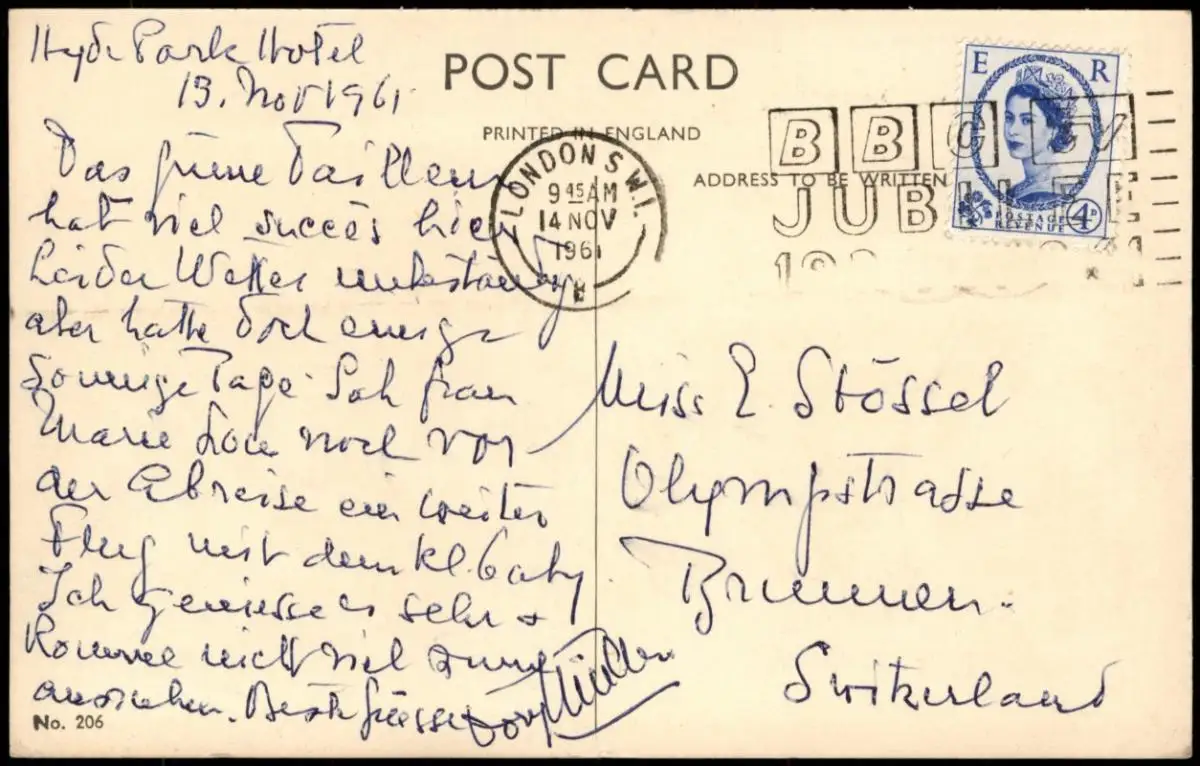 Hyde Park Hotel
13. Nov 1961
Das grüne Tailleur
hat viel succès hier
Leider Wetter unbeständig
aber hatte doch einige
sonnige Tage. Sah frau
Marie Lou noch vor
der Abreise ein weiter
Flug mit dem kl. baby.
Ich geniesse es sehr +
komme nicht viel zum
ausruhen. Beste grüsse
POST CARD
PRINTED IN ENGLAND
ADDRESS TO BE WRITTEN
LONDON S.W.1.
9 45 AM
14 NOV
1961
E
BBC TV
JUBILEE
E R
POSTAGE
REVENUE
4D
Miss E. Stössel
Olympstrasse
Brunnen.
Switzerland
No. 206